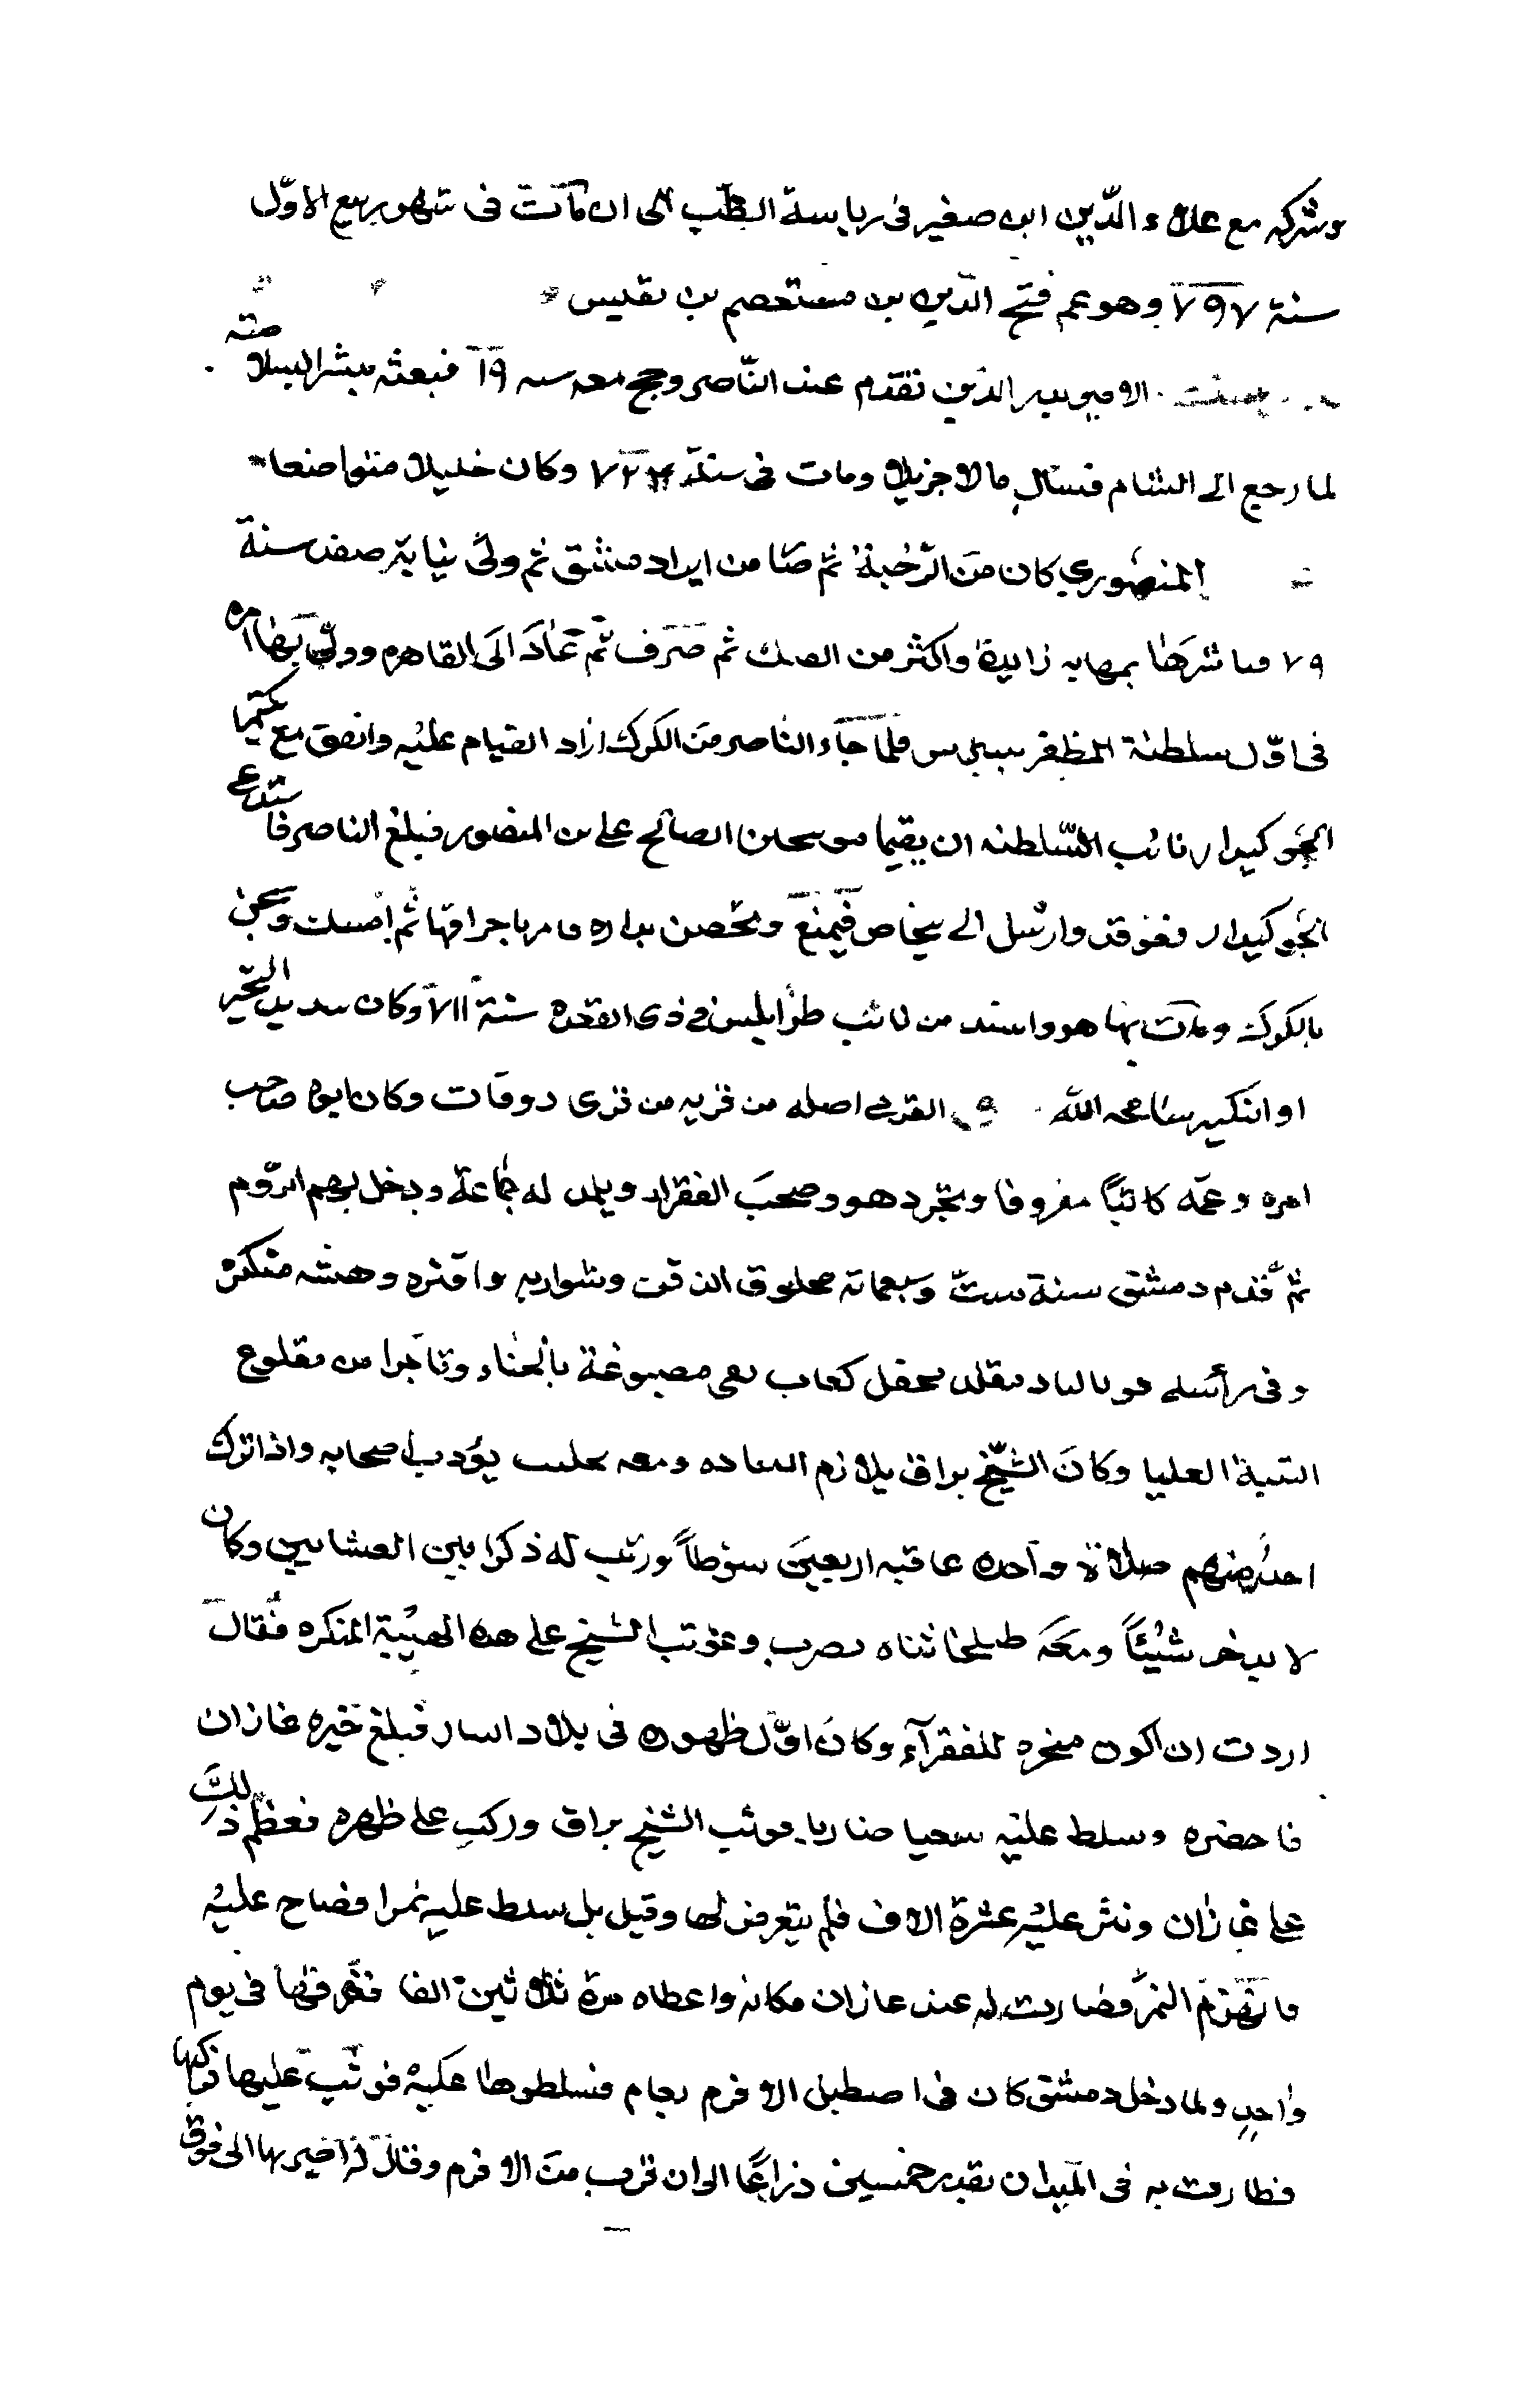 وشركه مع علاء الدّين ابن صغير فى رياسة الطّب الى ان مات فى شهور ربيع الاوّل
سنة ٧٩٧ وهو عم فتح الدّين بن معتصم بن نفيس
الامير بدر الدّين تقدم عند النّاصر وحج معه سنه ١٩ فبعثه مبشرا بسلامته
لما رجع الى الشام فنال مالا جزيلا ومات فى سنة ٧٢٣ وكان خليلا متواضعا
المنصوري كان من الرّحبة ثم صار من امراء دمشق ثم ولى نيابة صفد سنة
٧٩ فباشرها بمهابه زايدة واكثر من الصيد ثم صرف ثم عاد الى القاهره وولى بها امره
فى اوّل سلطنة المظفر بيبرس فلما جاء الناصر من الكرك اراد القيام عليه واتفق مع بكتمر
الجوكندار نائب السّلطنه ان يقيما موسى بن الصالح على بن المنصور فبلغ الناصر فاستدعى
الجوكندار فعوقه وارسل الى بتخاص فيمنع وتحصن بداره فامر باحراقها ثم امسك وسجن
بالكرك ومات بها هو واسندمر نائب طرابلس فى ذى القعده سنة ٧١١ وكان شديد التجبر
او التكبر سامحه الله القرمى اصله من قريه من قرى دوقات وكان ابوه صاحب
امره وعمّه كاتبًا معروفا وتجرد هو وصحب الفقراء وتلمذ له جماعة ودخل بهم الرّوم
ثم قدم دمشق سنة ست وسبعمائة محلوق الذقن وشواربه وافره وهيئته منكره
وفى رأسه قرنا لباد مقلد بحبل كعاب بقر مصبوغة بالحنّاء وتاجرا من مقلوع
الثنية العليا وكان الشّيخ براق يلازم العباده ومعه محتسب يؤدب اصحابه واذا ترك
احد منهم صلاة واحده عاقبه اربعين سوطاً ورتب له ذكرا بين العشايين وكان
لا يدخر شيئاً ومعه طبلخاناه تضرب وعوتب الشيخ على هذه الهيئة المنكره فقال
اردت ان اكون مسخره للفقرآء وكان اوّل ظهوره فى بلاد التتار فبلغ خبره غازان
فاحضره وسلط عليه سبعا ضاريا فوثب الشيخ براق وركب على ظهره فعظم ذلك
على غازان ونثر عليه عشرة الاف فلم يتعرض لها وقيل بل سلط عليه نمرا فصاح عليه
فانهزم النمر فصارت له عند غازان مكانه واعطاه مرة ثلاثين الفا ففرقها فى يوم
واحد ولما دخل دمشق كان فى اصطبل الافرم نعام فسلطوها عليه فوثب عليها فركبها
فطارت به فى الميدان بقدر خمسين ذراعًا الى ان قرب من الافرم وقال له اطير بها الى فوق